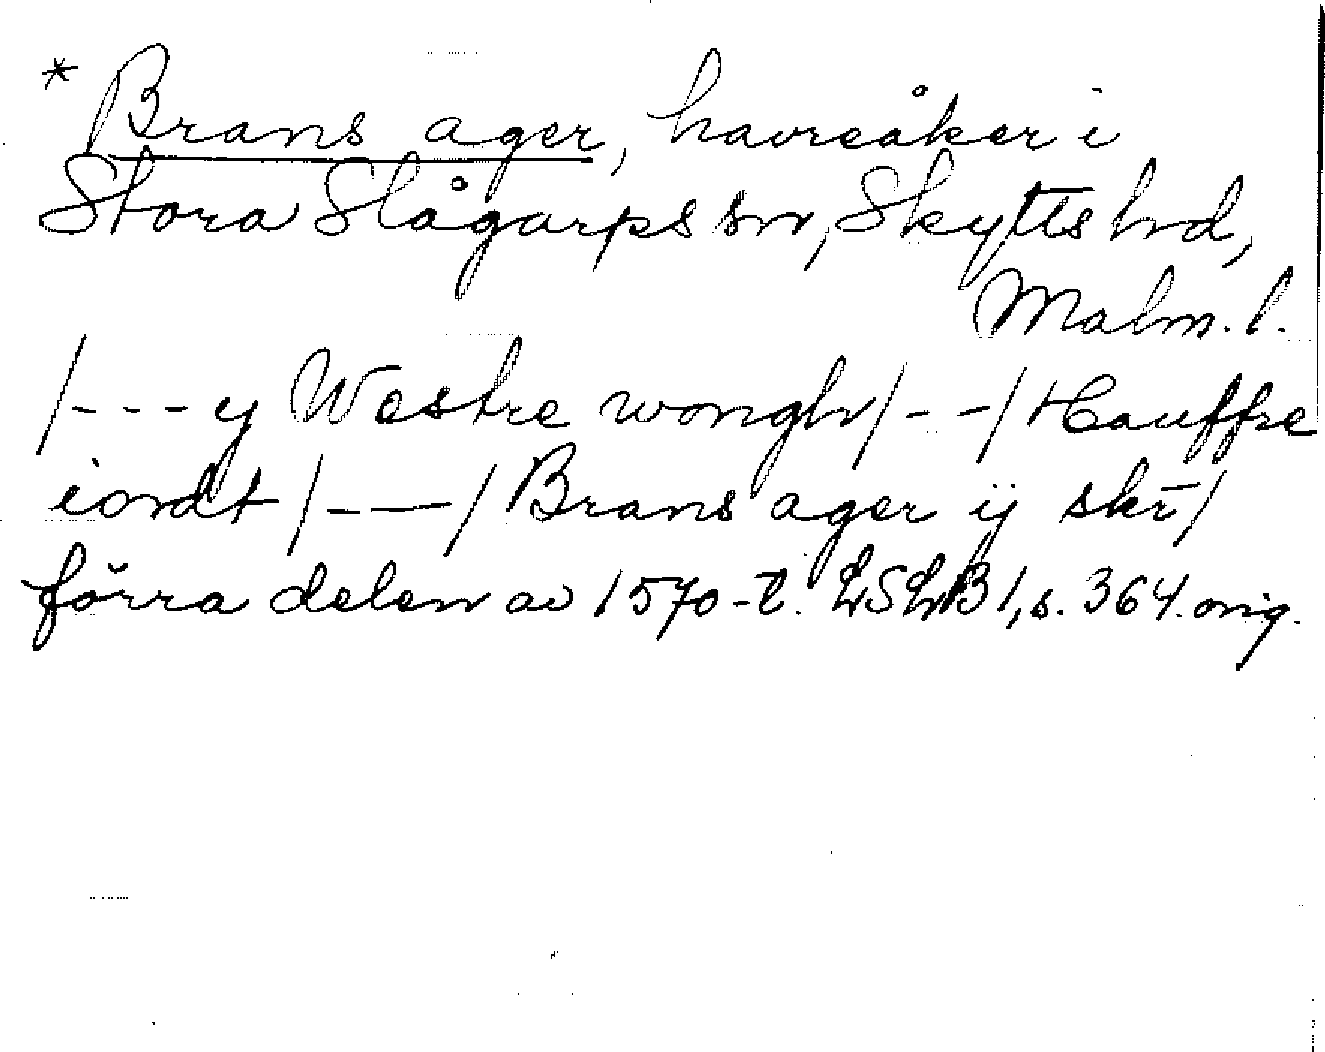 * Brans ager, havreåker i
Stora Slågarps sn, Skytts hd,
Malm. l.
/---y Westre wongh/--/Hauffre
iordt/---/Brans ager ij skr̄/
förra delen av 1570-t. LSLB 1, s. 364. orig.